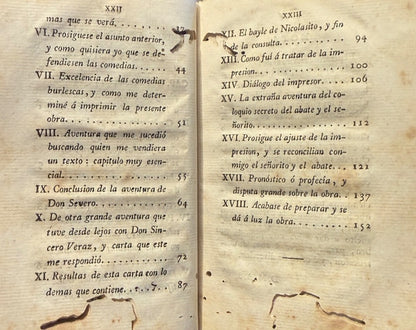 XXII
mas que se verá.
VI. Prosiguese el asunto anterior,
y como quisiera yo que se de-
fendiesen las comedias. 44
VII. Excelencia de las comedias
burlescas, y como me deter-
miné á imprimir la presente
obra. 51
VIII. Aventura que me sucedió
buscando quien me vendiera
un texto: capitulo muy esen-
cial. 55
IX. Conclusion de la aventura de
Don Severo. 64
X. De otra grande aventura que
tuve desde lejos con Don Sin-
cero Veraz, y carta que este
me respondió. 72
XI. Resultas de esta carta con lo
demas que contiene. 87
XXIII
XII. El bayle de Nicolasito, y fin
de la consulta. 94
XIII. Como fuí á tratar de la im-
presion. 100
XIV. Diálogo del impresor. 106
XV. La extraña aventura del co-
loquio secreto del abate y el se-
ñorito. 112
XVI. Prosigue el ajuste de la im-
presion, y se reconcilian con-
migo el señorito y el abate. 121
XVII. Pronóstico ó profecía, y
disputa grande sobre la obra. 137
XVIII. Acabase de preparar y se
dá á luz la obra. 152